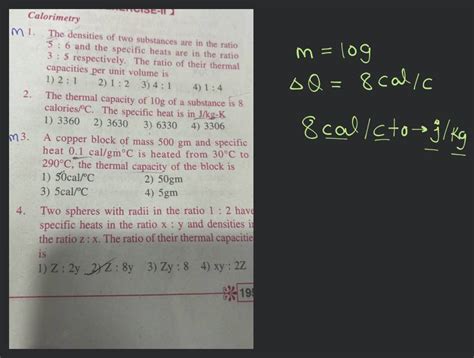 EXERCISE-II
Calorimetry
m 1. The densities of two substances are in the ratio
5 : 6 and the specific heats are in the ratio
3 : 5 respectively. The ratio of their thermal
capacities per unit volume is
1) 2 : 1 2) 1 : 2 3) 4 : 1 4) 1 : 4
2. The thermal capacity of 10g of a substance is 8
calories/ºC. The specific heat is in J/kg-K
1) 3360 2) 3630 3) 6330 4) 3306
m 3. A copper block of mass 500 gm and specific
heat 0.1 cal/gmºC is heated from 30ºC to
290ºC, the thermal capacity of the block is
1) 50cal/ºC 2) 50gm
3) 5cal/ºC 4) 5gm
4. Two spheres with radii in the ratio 1 : 2 have
specific heats in the ratio x : y and densities in
the ratio z : x. The ratio of their thermal capacitie
is
1) Z : 2y 2) Z : 8y 3) Zy : 8 4) xy : 2Z
195
m = 10g
ΔQ = 8cal/c
8cal/c to → j/kg